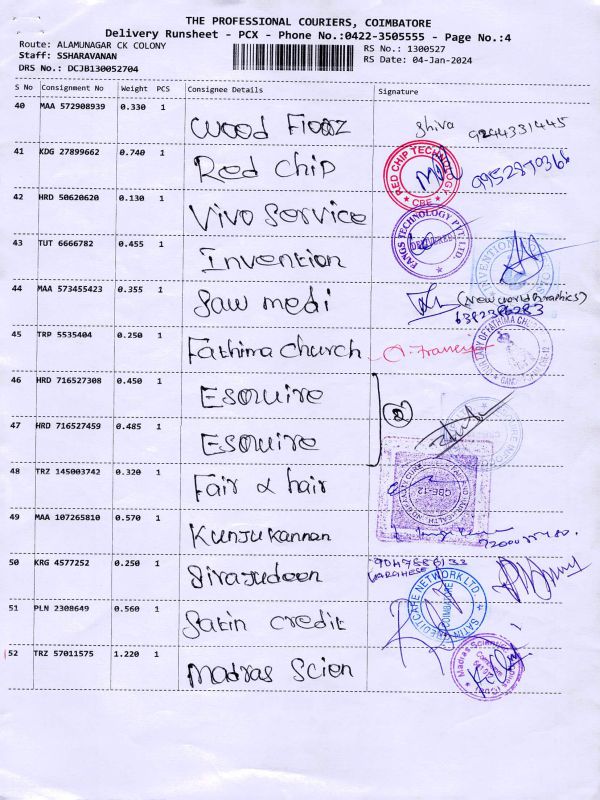 THE PROFESSIONAL COURIERS, COIMBATORE
Delivery Runsheet - PCX - Phone No.:0422-3505555 - Page No.:4
Route: ALAMUNAGAR CK COLONY
RS No.: 1300527
Staff: SSHARAVANAN
RS Date: 04-Jan-2024
DRS No.: DCJB130052704
S No Consignment No Weight PCS Consignee Details Signature
40 MAA 572908939 0.330 1
Wood Flooz Shiva 9244331445
41 KDG 27899662 0.740 1
Red chip RED CHIP TECHNOLOGY CBE
42 HRD 50620620 0.130 1
Vivo Service FANGS TECHNOLOGY PVT LTD
43 TUT 6666782 0.455 1
Invention
44 MAA 573455423 0.355 1
Saw medi (New world Graphics)
45 TRP 5535404 0.250 1
Fathima church
46 HRD 716527308 0.450 1
Esquire
47 HRD 716527459 0.485 1
Esquire
48 TRZ 145003742 0.320 1
Fair & hair CBE-12
49 MAA 107265810 0.570 1
Kunjukannan
50 KRG 4577252 0.250 1
Sirajudeen VARGHESE
51 PLN 2308649 0.560 1
Satin credit SATIN CREDITCARE NETWORK LTD COIMBATORE
52 TRZ 57011575 1.220 1
Madras Scien